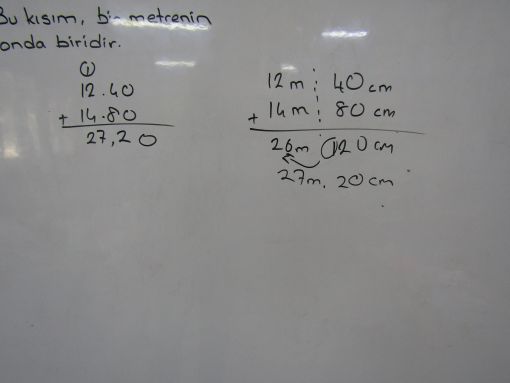 Bu kısım, bir metrenin
onda biridir.
1
12.40
+ 14.80
27,20
12m 40cm
+ 14m 80cm
26m 120cm
27m. 20cm